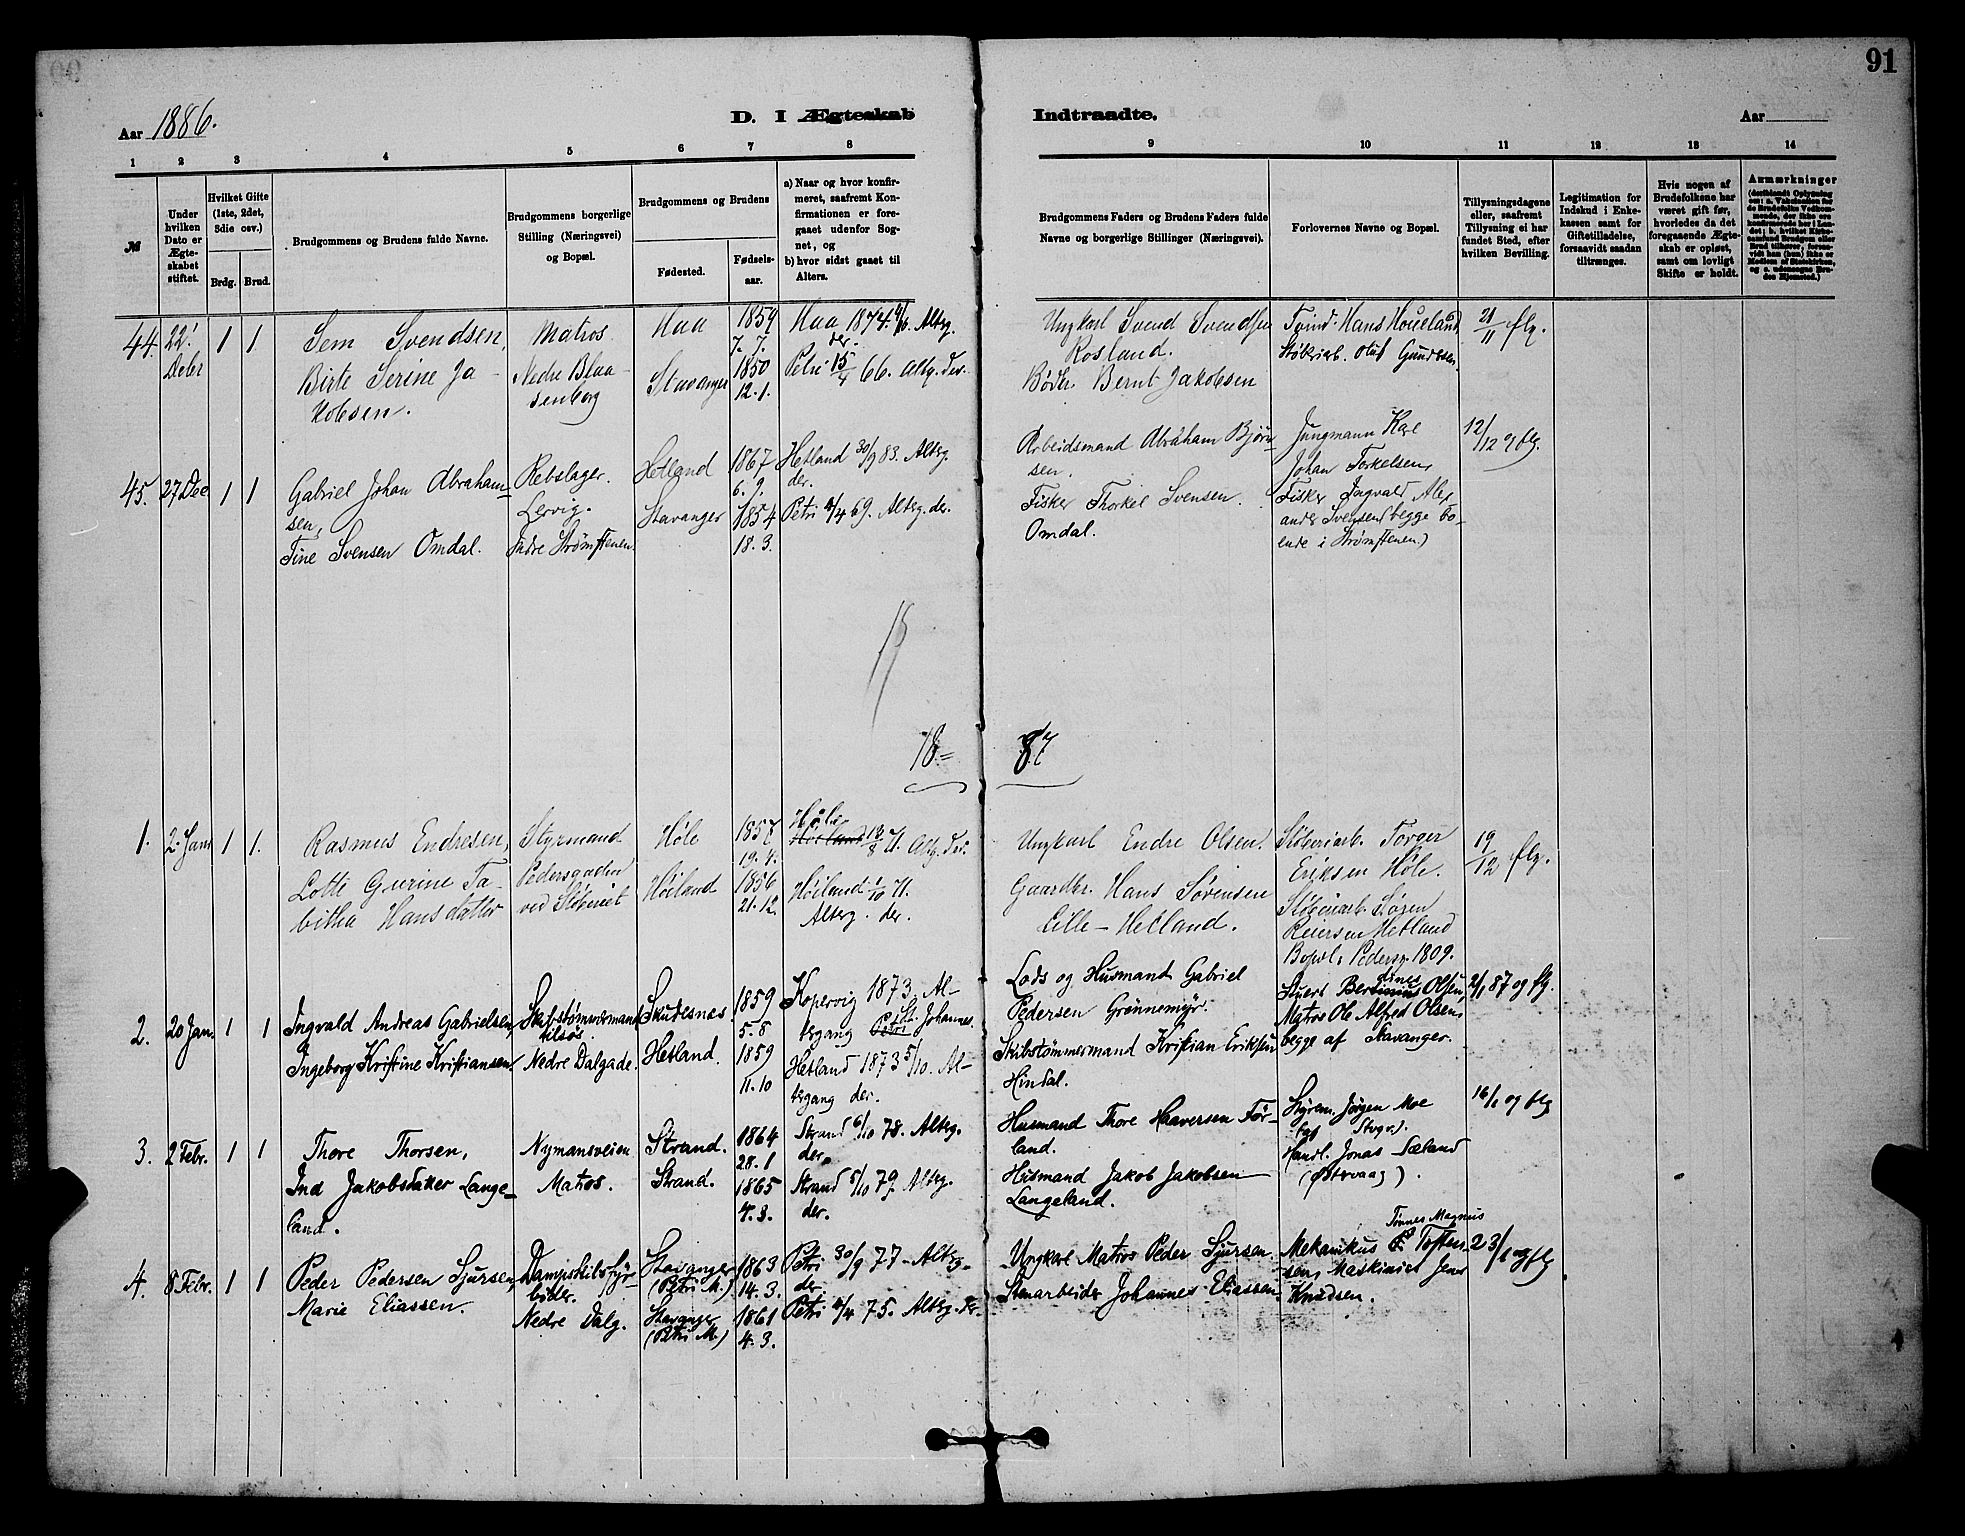 91
Aar 1886.
D. I Ægteskab Indtraadte.
Aar
1 2 3 4 5 6 7 8 9 10 11 12 13 14
№
Under hvilken Dato er Ægteskabet stiftet.
Hvilket Gifte (1ste, 2det, 3die osv.)
Brdg. Brud.
Brudgommens og Brudens fulde Navne.
Brudgommens borgerlige Stilling (Næringsvei) og Bopæl.
Brudgommens og Brudens
Fødested.
Fødselsaar.
a) Naar og hvor konfirmeret, saafremt Konfirmationen er foregaaet udenfor Sognet, og
b) hvor sidst gaaet til Alters.
Brudgommens Faders og Brudens Faders fulde Navne og borgerlige Stillinger (Næringsvei).
Forlovernes Navne og Bopæl.
Tillysningsdagene eller, saafremt Tillysning ei har fundet Sted, efter hvilken Bevilling.
Legitimation for Indskud i Enkekassen samt for Giftetilladelse, forsaavidt saadan tiltrænges.
Hvis nogen af Brudefolkene har været gift før, hvorledes da det foregaaende Ægteskab er opløst, samt om lovligt Skifte er holdt.
Anmærkninger
44. 22' Deber 1 1
Sem Svendsen,
Birte Serine Ja-
kobsen.
Matros
Nedre Blaa-
senborg
Haa
Stavanger
1859
7. 7.
1850
12. 1.
Haa 1874. Alterg.
der.
Petri 15/4 66. Alterg. der.
Ungkarl Svend Svendsen
Rosland.
Bødker Bernt Jakobsen
Hans Houeland
Støberiarb. Oluf Gundersen
21/11 flg.
45. 27 Dec 1 1
Gabriel Johan Abraham-
sen,
Tine Svensen Omdal.
Rebslager.
Lervig.
Indre Strømstenen.
Hetland
Stavanger
1867
6. 9.
1854
18. 3.
Hetland 30/9 83. Alterg.
der.
Petri 11/4 69. Alterg. der.
Arbeidsmand Abraham Bjørn-
sen.
Fisker Thorkel Svensen
Omdal.
Jungmann Karl
Johan Torkelsen,
Fisker Ingvald Alex-
ander Svensen (begge bo-
ende i Strømstenen.)
12/12 og flg.
18= 87
1. 2. Jan 1 1.
Rasmus Endresen,
Lotte Gurine Ta-
bitha Hansdatter
Styrmand
Pedersgaden
ved Støberiet
Høle
Høiland
1857
19. 4.
1856
21. 12.
Høle
18/8 71. Altg. der.
Høiland 1/10 71.
Alterg. der.
Ungkarl Endre Olsen.
Gaardbr. Hans Sørensen
Lille-Helland.
Støberiarb. Torger
Eriksen Høle.
Støberiarb. Søren
Reiersen Hetland
Bopæl, Pedersg. 1809.
19/12 flg.
2. 20 Jan. 1 1
Ingvald Andreas Gabrielsen,
Ingeborg Kristine Kristiansen.
Skibstømmermand
tilsøs.
Nedre Dalgade.
Skudesnæs
Hetland.
1859
5. 8
1859
11. 10
Kopervig 1873. Al-
tergang Petri St. Johannes.
Hetland 1873 5/10. Al-
tergang der.
Lods og Husmand Gabriel
Pedersen Grønnemyr.
Skibstømmermand Kristian Eriksen
Hindal.
Stuert Olsen,
Matros Ole Alfred Olsen,
begge af Stavanger.
2/1 87 og flg.
3. 2 Febr. 1 1
Thore Thorsen,
Ind Jakobsdatter Lange-
land.
Nymansveien
Matros.
Strand.
Strand.
1864
28. 1
1865
4. 3.
Strand 6/10 78. Alterg.
der.
Strand 5/10 79. Alterg.
der.
Husmand Thore Haaversen Før-
land.
Husmand Jakob Jakobsen
Langeland.
Styrm. Jørgen Moe
Handl. Jonas Sæland
(Østervaag).
16/1 og flg
4. 8 Febr. 1 1
Peder Pedersen Sjursen,
Marie Eliassen.
Dampskibsfyr-
bøder.
Nedre Dalg.
Stavanger
(Petri M.)
Stavanger
(Petri M.)
1863
14. 3.
1861
4. 3.
Petri 30/9 77 - Alterg.
der.
Petri 11/4 75. Alterg. der.
Ungkarl Matros Peder Sjursen
Stenarbeider Johannes Eliassen.
Tønnes Magnus
Mekanikus Toften-
sen, Maskinist Jens
Knudsen.
23/1 og flg